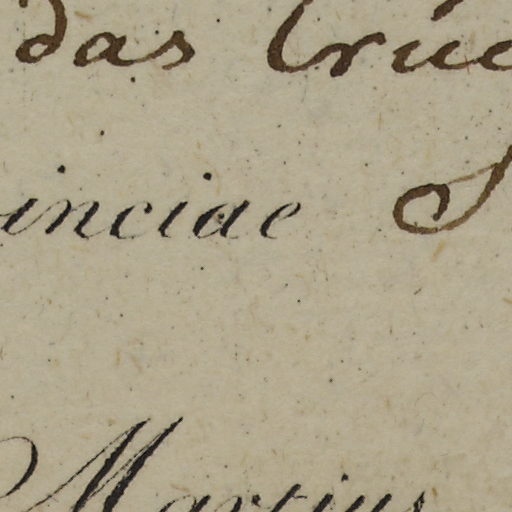 das Cruc
inciae S
Martius